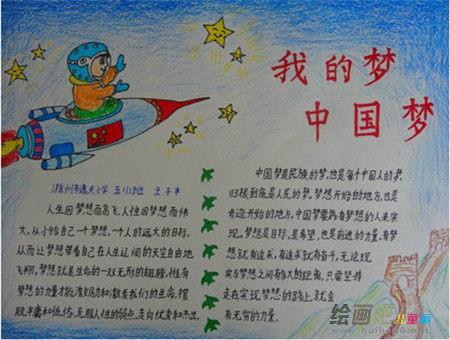 我的梦
中国梦
滁州市逸夫小学 五(1)班 王子丰
人生因梦想而高飞,人性因梦想而伟
大。从小给自己一个梦想,一个人的远大的目标,
从而让梦想带着自己在人生辽阔的天空自由地
飞翔。梦想就是生命的一双无形的翅膀,惟有
梦想的力量才能激发生命,摆
脱平庸和低俗,克服人性的弱点,走向优秀和杰出。
中国梦是民族的梦,也是每个中国人的
归根到底是人民的梦。梦想开始的地方,也是
奇迹开始的地方。中国梦需要有梦想的人来实
现。梦想是目标,是希望,也是前进的力量。有梦
想就有追求,有追求就有奋斗,无论现
实与梦想之间有多大的距离,只要坚持
走在实现梦想的路上,就会
有无穷的力量。
绘画 儿童
www.huihua8.net